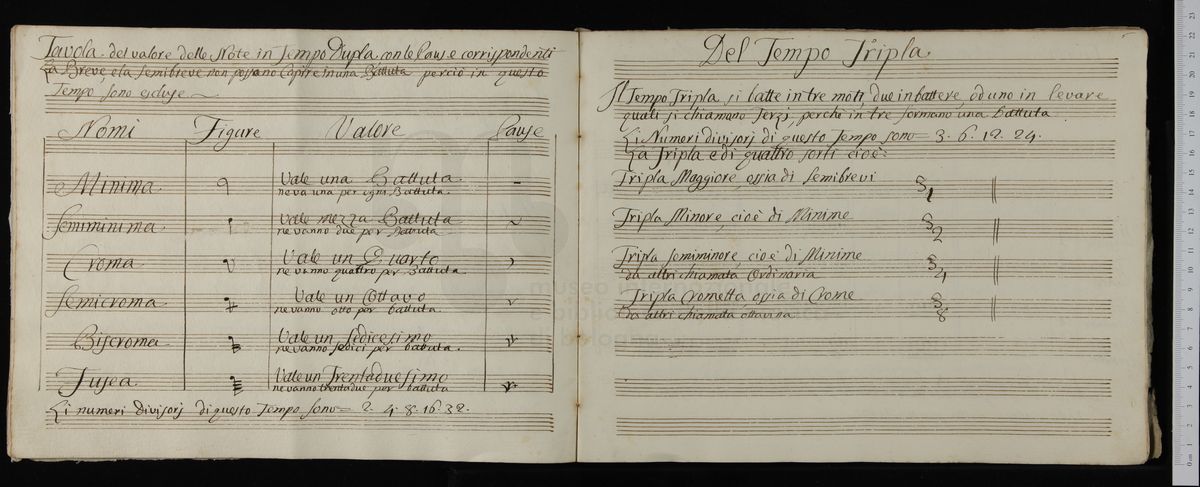 Tavola del valore delle Note in Tempo Dupla, con le Pause corrispondenti
La Breve, ela Semibreve non possano Capire in una Battuta perciò in questo
Tempo sono escluse
Nomi Figure Valore Pause
Minima Vale una Battuta
ne va una per ogni Battuta.
Semiminima Vale mezza Battuta
ne vanno due per Battuta
Croma Vale un Quarto
ne vanno quattro per Battuta
Semicroma Vale un Ottavo
ne vanno otto per battuta
Biscroma Vale un sedicesimo
ne vanno sedici per battuta.
Fusea Vale un Trentaduesimo
ne vanno trentadue per battuta
Li numeri Divisorj di questo Tempo sono = 2. 4. 8. 16. 32.
Del Tempo Tripla
Il Tempo Tripla si batte in tre moti, due in battere, ed uno in levare
quali si chiamano Terzi, perchè in tre formano una battuta.
Li Numeri divisorj di questo Tempo sono = 3. 6. 12. 24.
La Tripla e di quattro sorti cioè:
Tripla Maggiore, ossia di Semibrevi 3/1
Tripla Minore, cioè di Minime 3/2
Tripla Semiminore, cioè di Minime 3/4
da altri chiamata Ordinaria
Tripla Crometta ossia di Crome 3/8
da altri chiamata ottavina
museo internazionale
e biblioteca della musica
di bologna